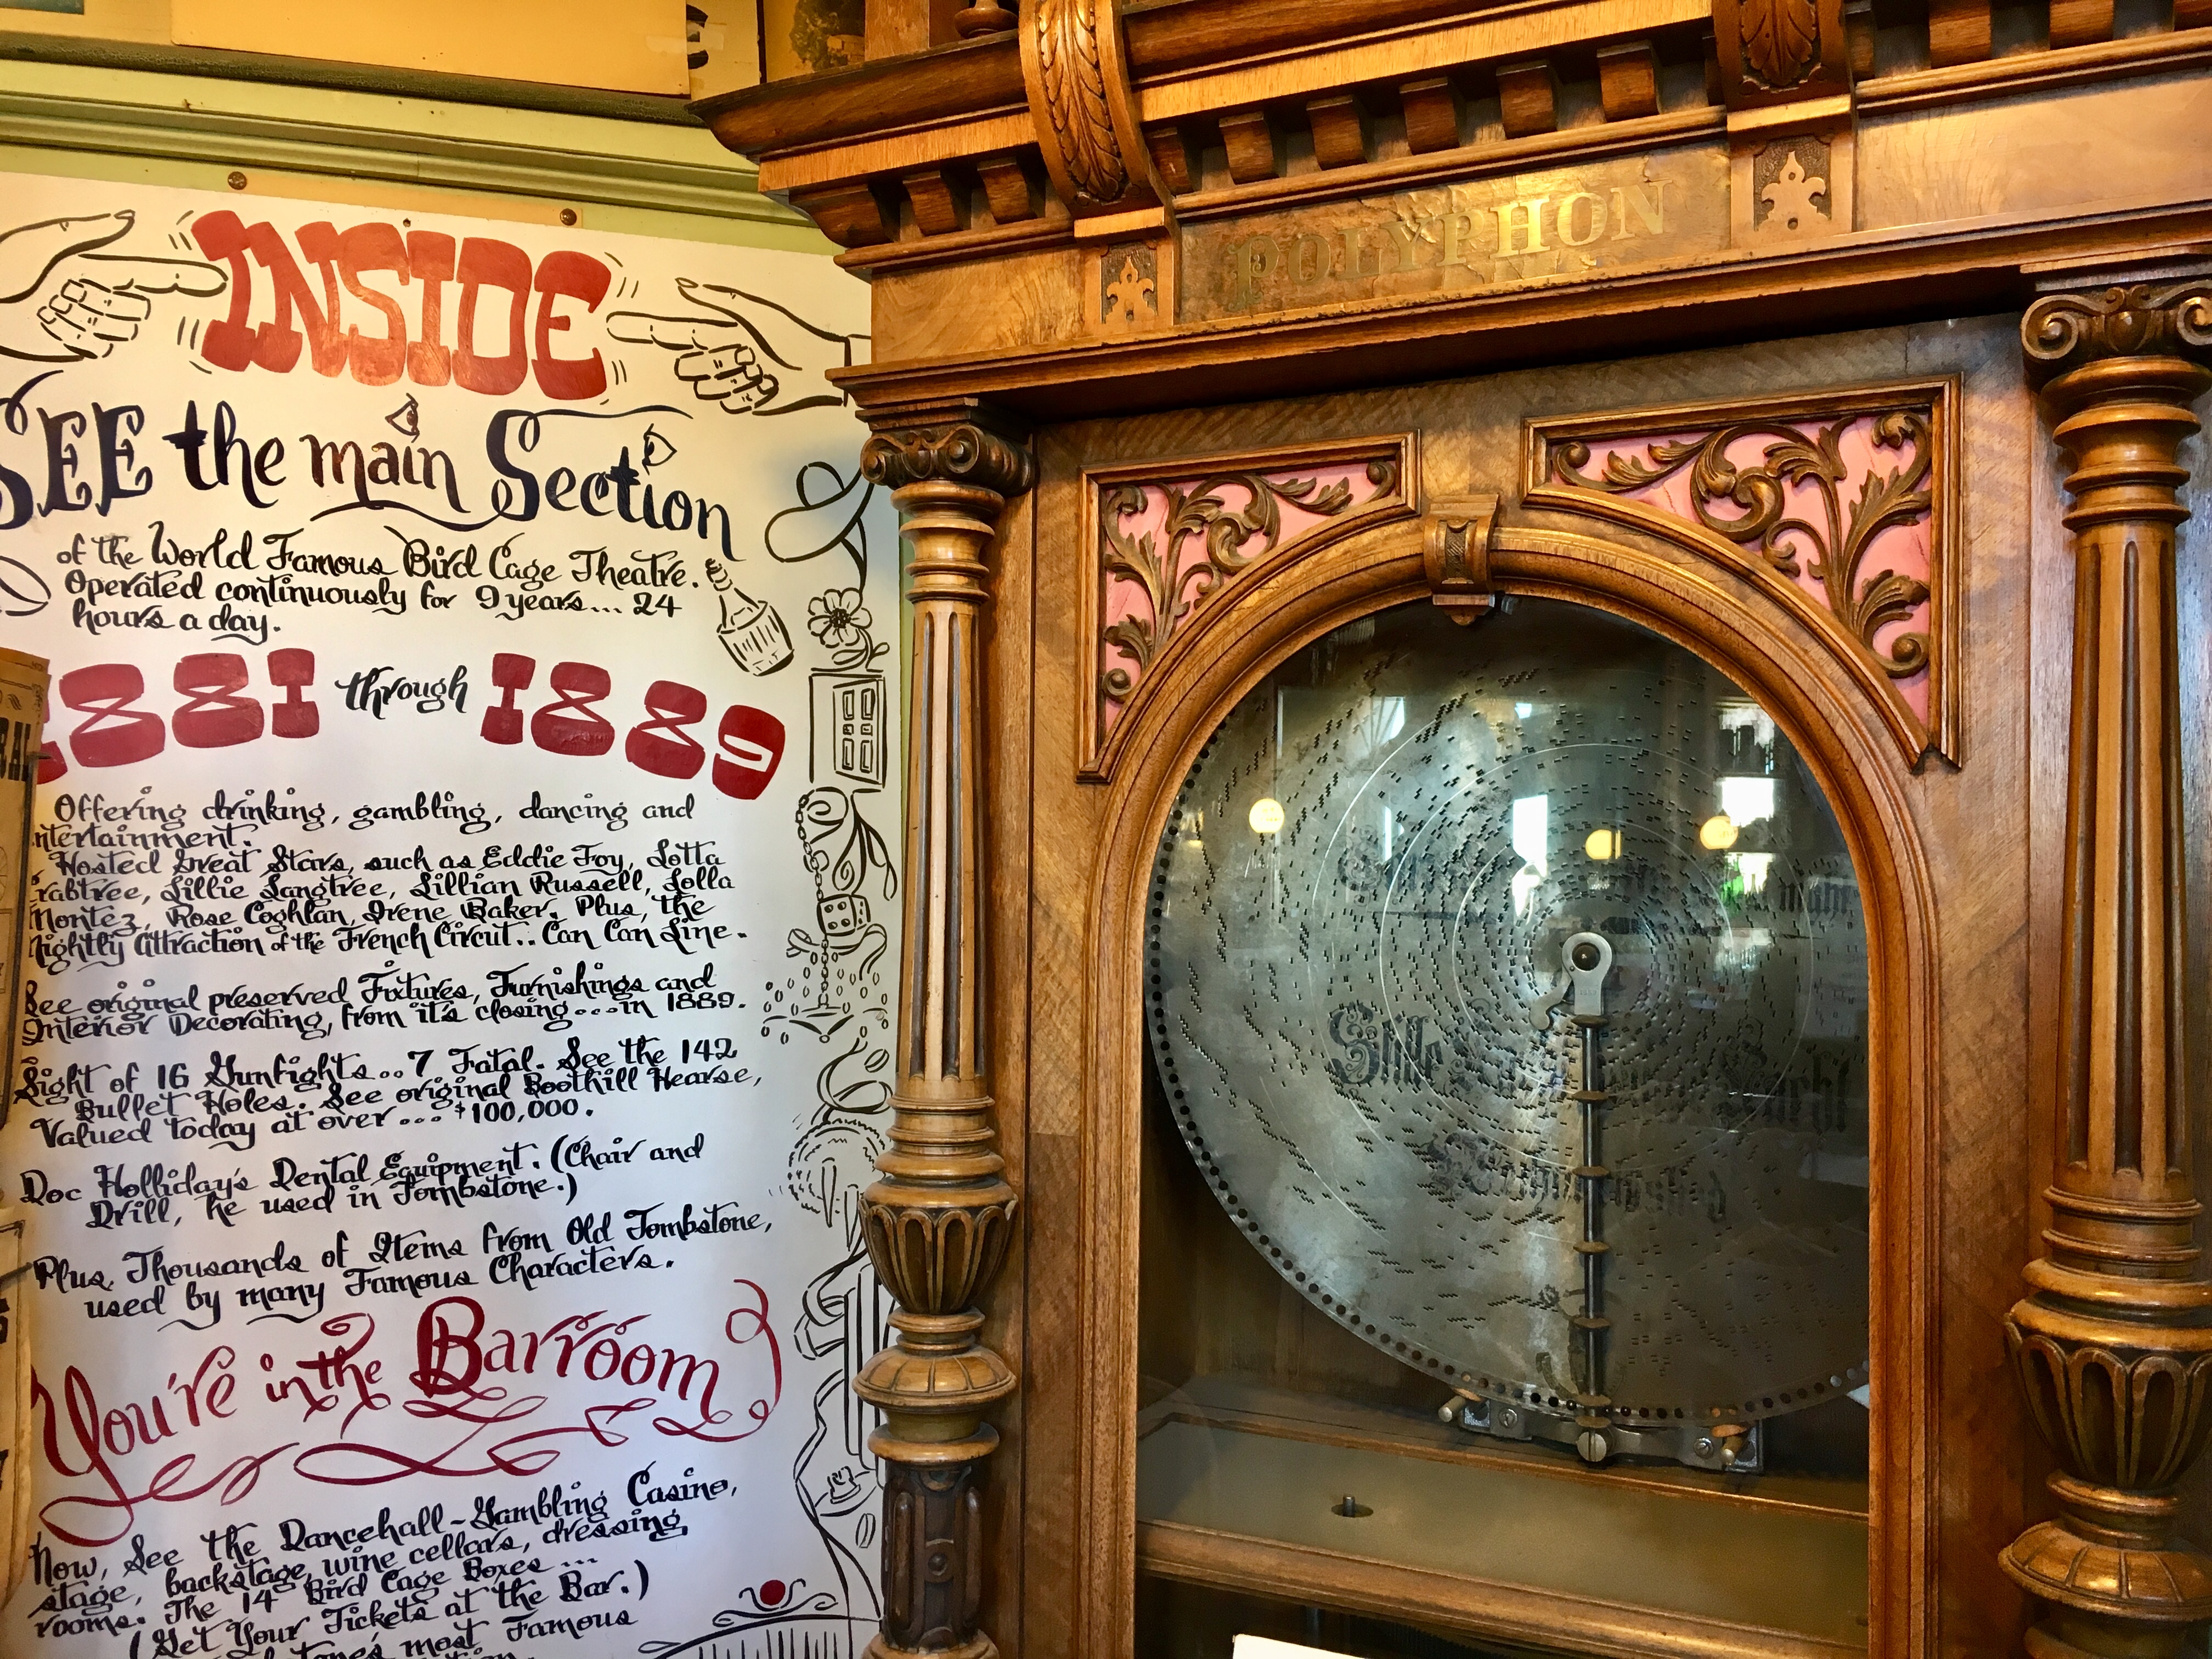 INSIDE
SEE the main Section
of the World Famous Bird Cage Theatre.
Operated continuously for 9 years... 24
hours a day.
1881 through 1889
Offering drinking, gambling, dancing and
ntertainment.
Hosted Great Stars, such as Eddie Foy, Lotta
rabtree, Lillie Langtree, Lillian Russell, Lolla
Montez, Rose Coghlan, Irene Baker. Plus, the
Nightly Attraction of the French Circut.. Can Can Line.
See original preserved Fixtures, Furnishings and
Interior Decorating, from it's closing...in 1889.
Sight of 16 Gunfights... 7 Fatal. See the 142
Bullet Holes. See original Boothill Hearse,
Valued today at over... $100,000.
Doc Holliday's Dental Equipment. (Chair and
Drill, he used in Tombstone.)
Plus, Thousands of Items from Old Tombstone,
used by many Famous Characters.
You're in the Barroom
Now, See the Dancehall-Gambling Casino,
stage, backstage, wine cellars, dressing
rooms. The 14 Bird Cage Boxes ...
(Get Your Tickets at the Bar.)
most Famous
POLYPHON
Stille